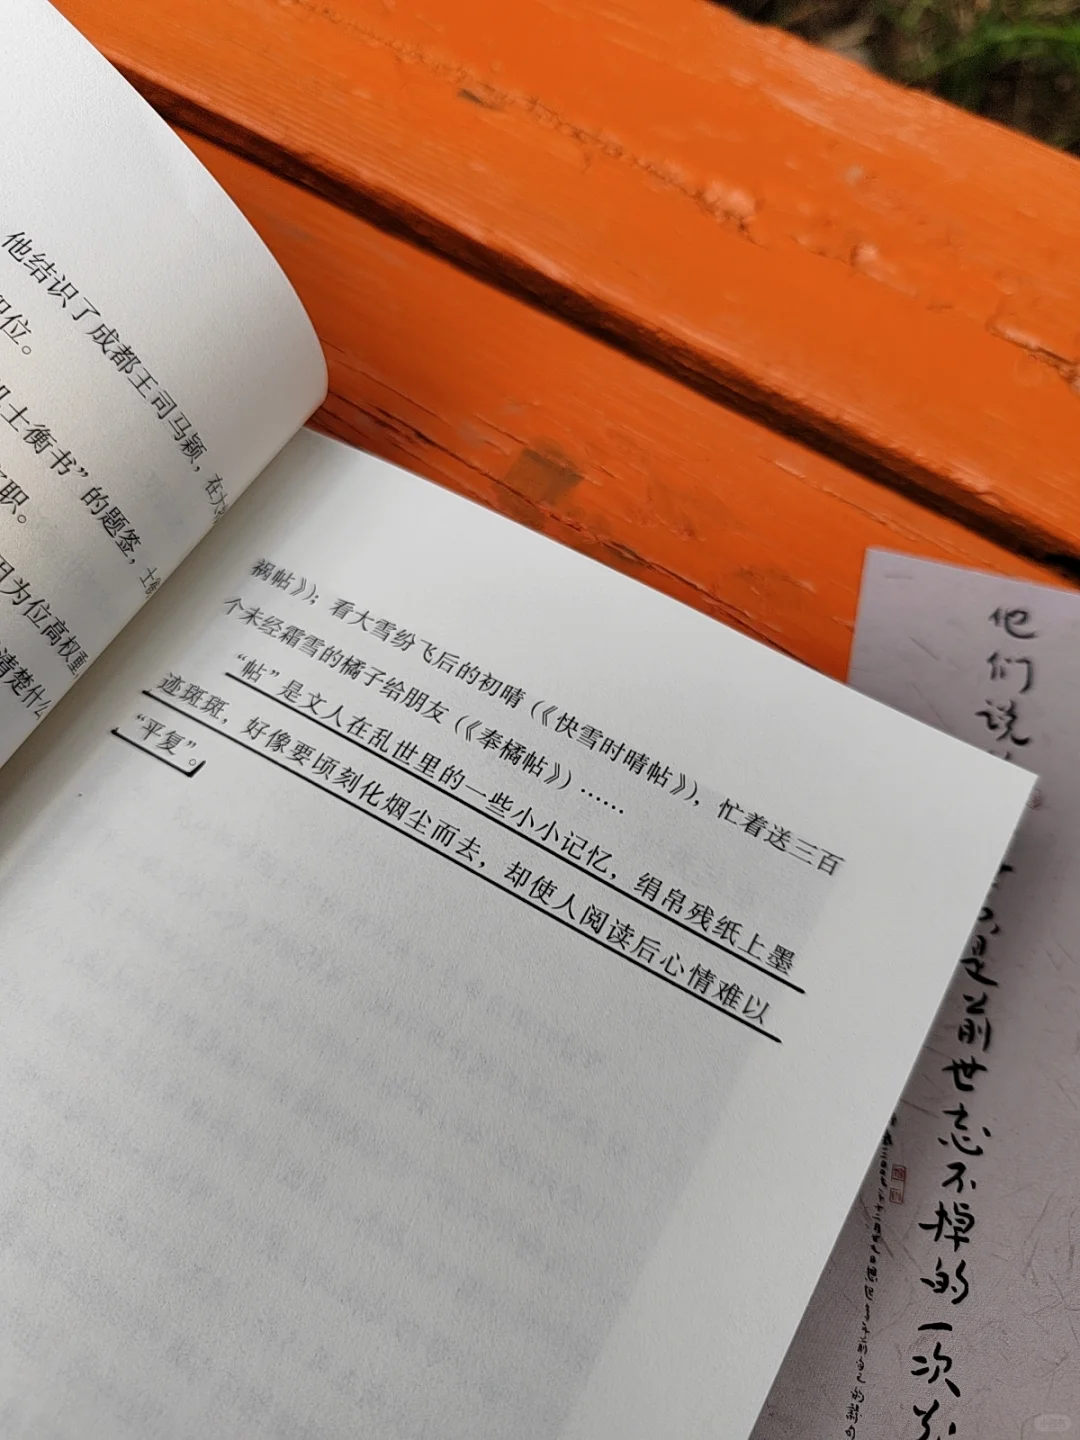 他结识了成都王司马颖，在大
职位。
士衡书”的题签，士
职。
因为位高权重
清楚什么
祸帖》）；看大雪纷飞后的初晴（《快雪时晴帖》），忙着送三百
个未经霜雪的橘子给朋友（《奉橘帖》）……
“帖”是文人在乱世里的一些小小记忆，绢帛残纸上墨
迹斑斑，好像要顷刻化烟尘而去，却使人阅读后心情难以
“平复”。
他们说
只是前世忘不掉的一次